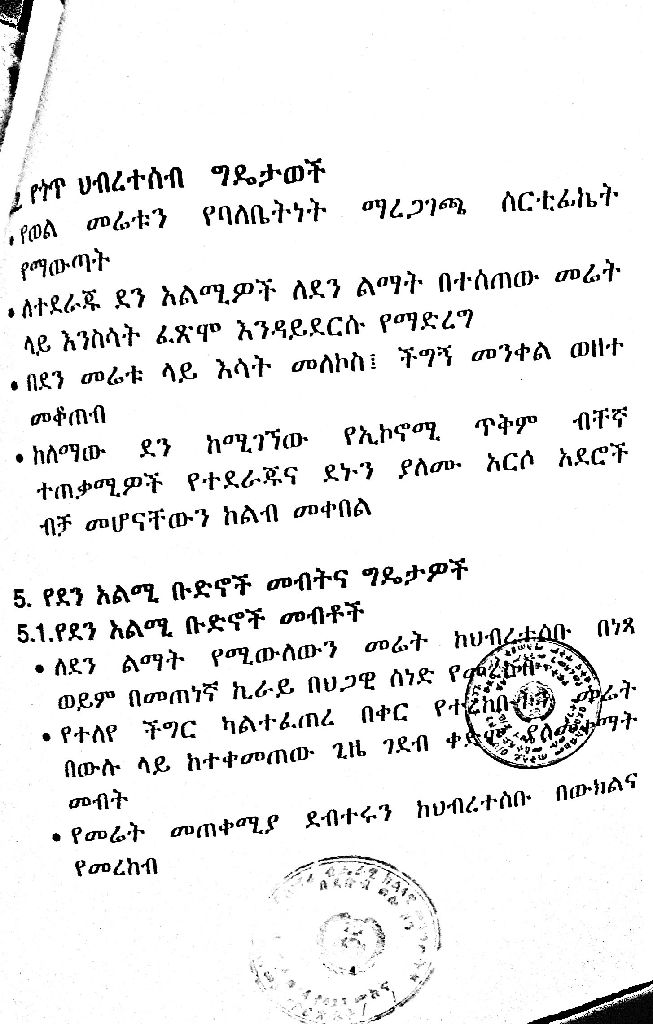 የጎጥ ህብረተሰብ ግዴታወች
• የወል መሬቱን የባለቤትነት ማረጋገጫ ሰርቲፊኬት
የማውጣት
• ለተደራጁ ደን አልሚዎች ለደን ልማት በተሰጠው መሬት
ላይ እንስሳት ፈጽሞ እንዳይደርሱ የማድረግ
• በደን መሬቱ ላይ እሳት መለኮስ፤ ችግኝ መንቀል ወዘተ
መቆጠብ
• ከለማው ደን ከሚገኘው የኢኮኖሚ ጥቅም ብቸኛ
ተጠቃሚዎች የተደራጁና ደኑን ያለሙ አርሶ አደሮች
ብቻ መሆናቸውን ከልብ መቀበል
5. የደን አልሚ ቡድኖች መብትና ግዴታዎች
5.1.የደን አልሚ ቡድኖች መብቶች
• ለደን ልማት የሚውለውን መሬት ከህብረተሰቡ በነጻ
ወይም በመጠነኛ ኪራይ በህጋዊ ስነድ
• የተለየ ችግር ካልተፈጠረ በቀር መሬት
በውሉ ላይ ከተቀመጠው ጊዜ ገደብ
መብት
• የመሬት መጠቀሚያ ደብተሩን ከህብረተሰቡ በውክልና
የመረከብ